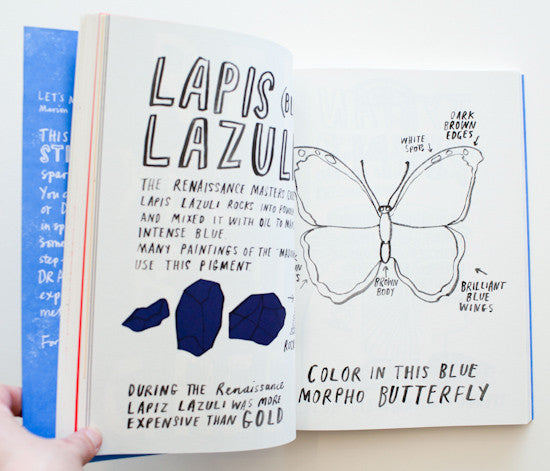 LET'S M
Marion
THIS
ST
spar
You c
or D
in sp
Som
step
DRA
exp
me
For
LAPIS (BL
LAZUL
THE RENAISSANCE MASTERS
LAPIS LAZULI ROCKS INTO POWD
AND MIXED IT WITH OIL TO MA
INTENSE BLUE.
MANY PAINTINGS OF THE "MAS
USE THIS PIGMENT
DURING THE Renaissance
LAPIZ LAZULI WAS MORE
EXPENSIVE THAN GOLD
DARK
BROWN
EDGES
WHITE
SPOTS
BROWN
BODY
BRILLIANT
BLUE
WINGS
COLOR IN THIS BLUE
MORPHO BUTTERFLY